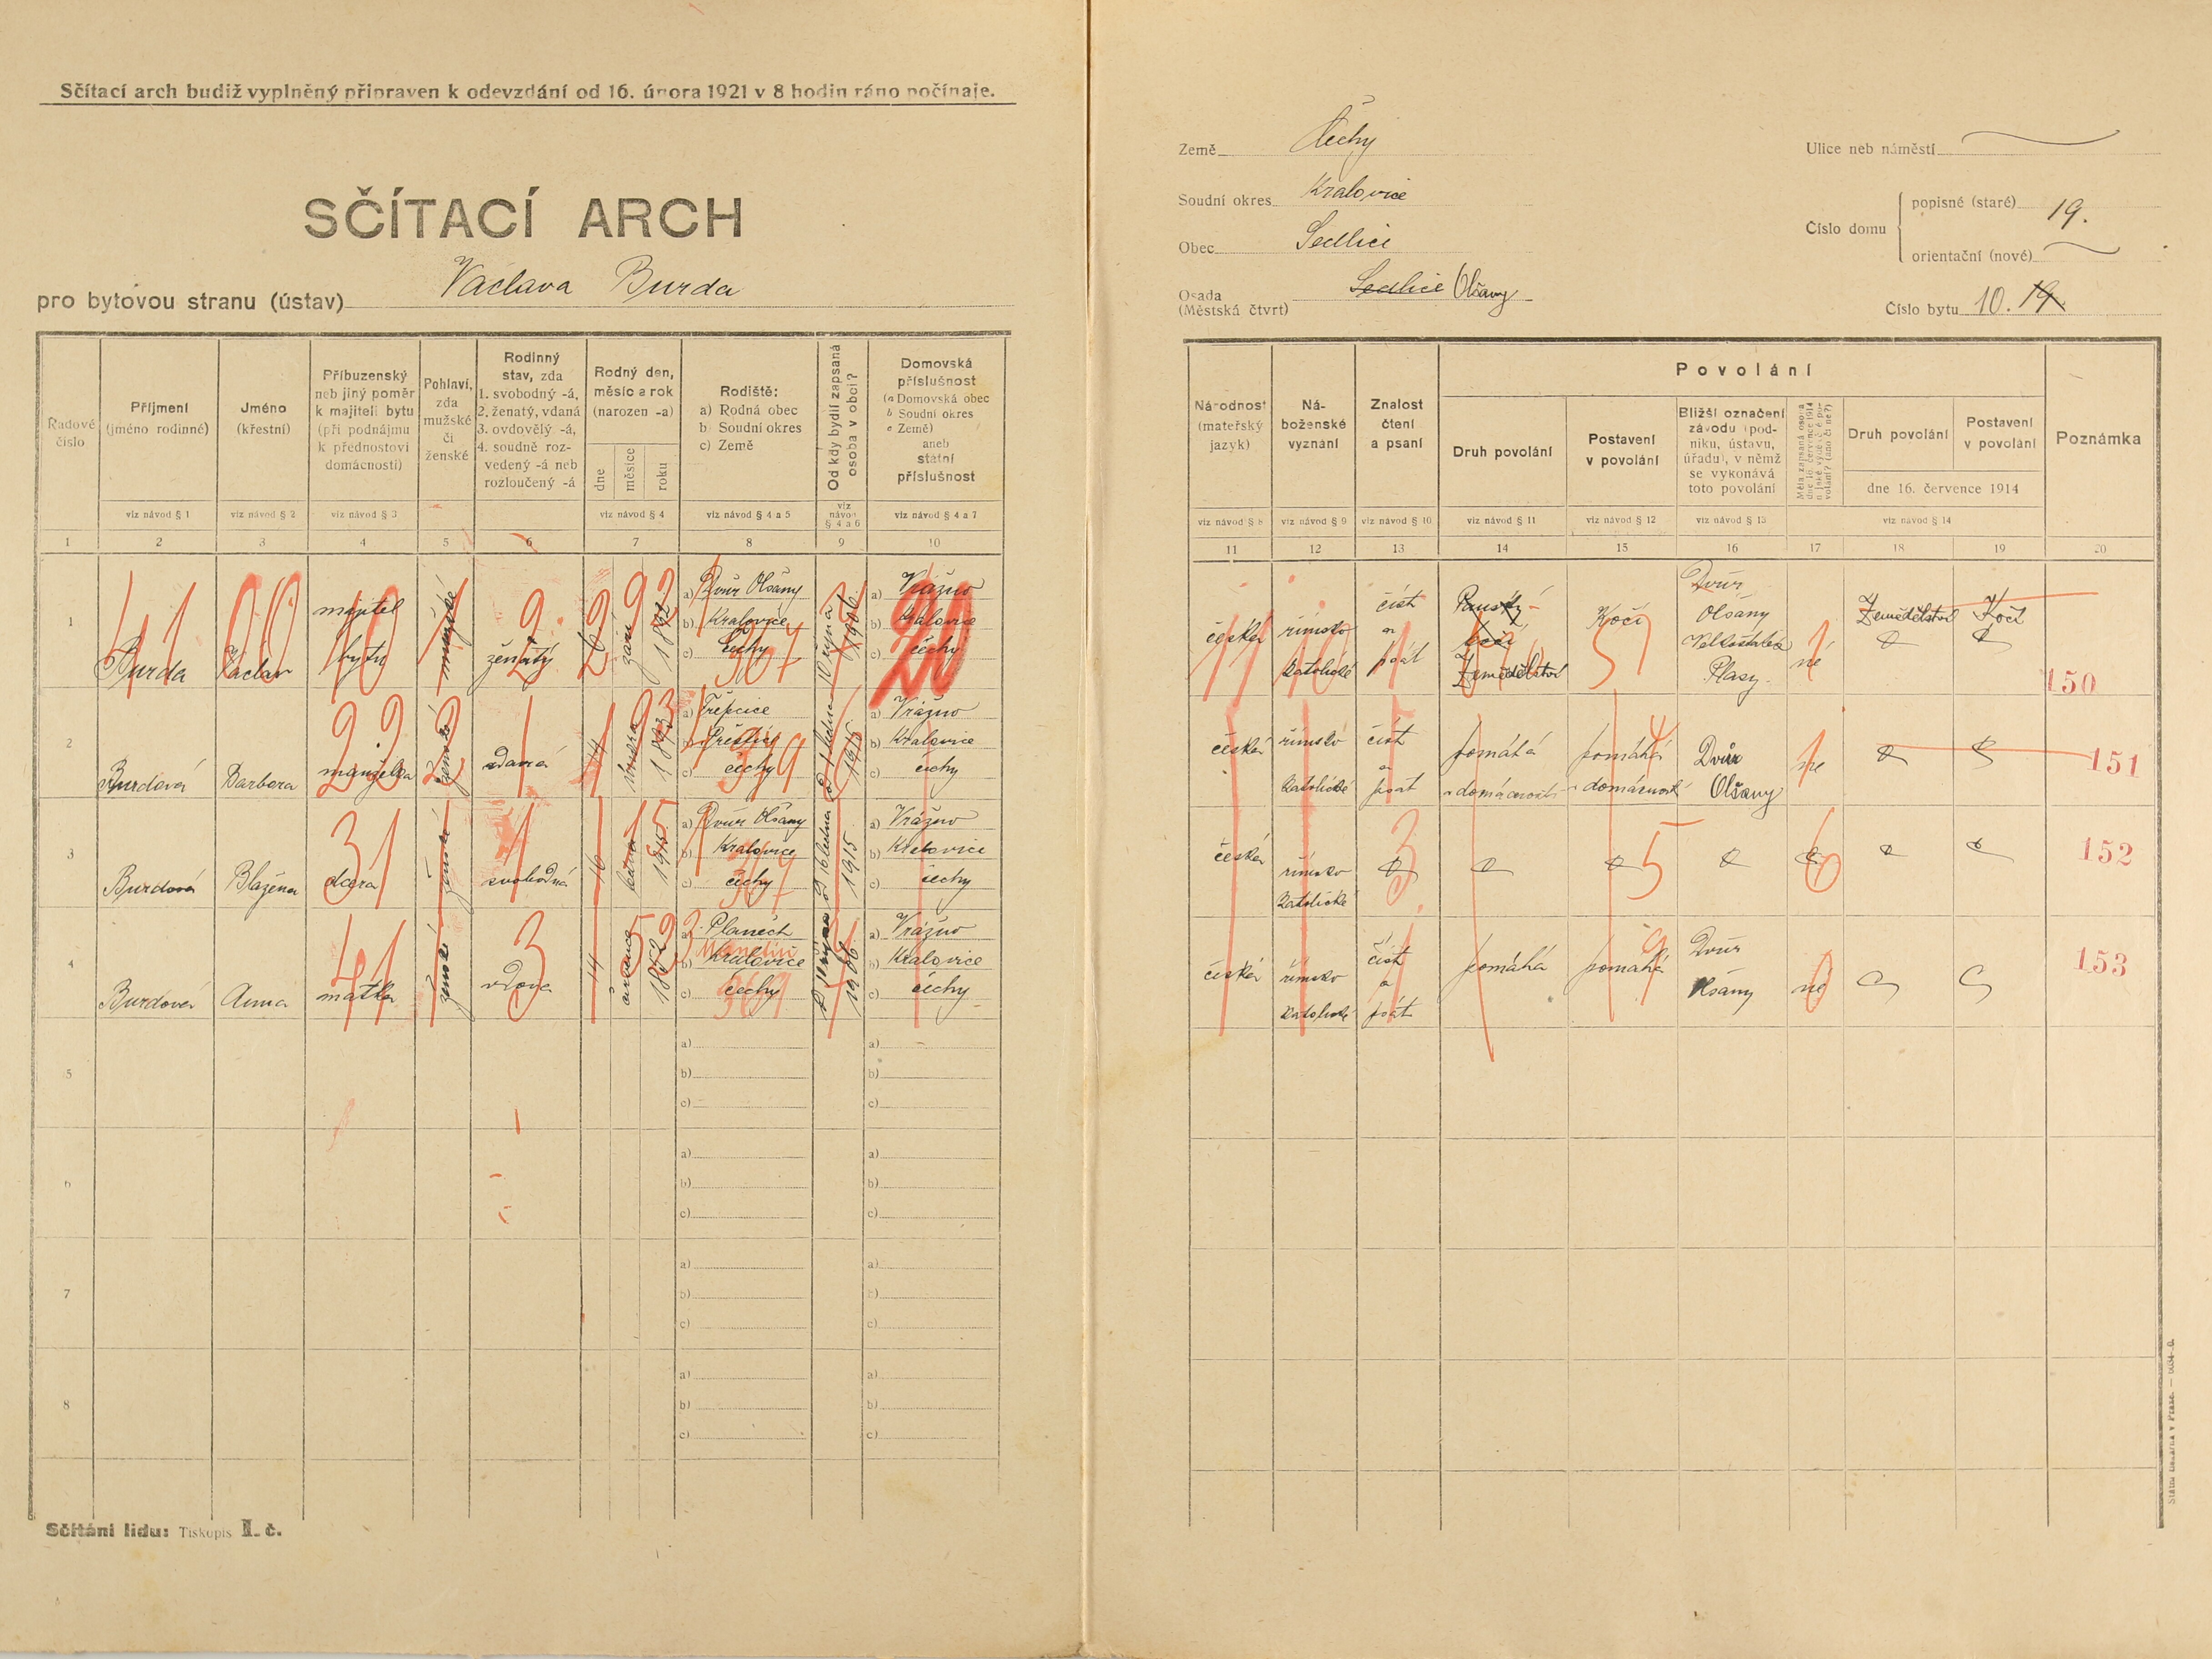 Sčítací arch budiž vyplněný připraven k odevzdání od 16. února 1921 v 8 hodin ráno počínaje.
SČÍTACÍ ARCH
pro bytovou stranu (ústav) Václava Burda
Země Čechy
Soudní okres Kralovice
Obec Sedlici
Osada Sedlice Olšany
(Městská čtvrť)
Ulice neb náměstí
Číslo domu
popisné (staré) 19.
orientační (nové)
Číslo bytu 10. 19
Řadové číslo
Příjmení (jméno rodinné)
Jméno (křestní)
Příbuzenský neb jiný poměr k majiteli bytu (při podnájmu k přednostovi domácnosti)
Pohlaví, zda mužské či ženské
Rodinný stav, zda
1. svobodný -á,
2. ženatý, vdaná
3. ovdovělý -á,
4. soudně rozvedený -á neb rozloučený -á
Rodný den, měsíc a rok (narozen -a)
dne měsíce roku
Rodiště:
a) Rodná obec
b) Soudní okres
c) Země
Od kdy bydlí zapsaná osoba v obci?
Domovská příslušnost
(a Domovská obec
b Soudní okres
c Země)
aneb státní příslušnost
viz návod § 1 viz návod § 2 viz návod § 3 viz návod § 4 viz návod § 4 a 5 viz návod § 4 a 6 viz návod § 4 a 7
1 2 3 4 5 6 7 8 9 10
Národnost (mateřský jazyk)
Náboženské vyznání
Znalost čtení a psaní
Povolání
Druh povolání
Postavení v povolání
Bližší označení závodu (podniku, ústavu, úřadu), v němž se vykonává toto povolání
Druh povolání
Postavení v povolání
dne 16. července 1914
Poznámka
viz návod § 8 viz návod § 9 viz návod § 10 viz návod § 11 viz návod § 12 viz návod § 13 viz návod § 14
11 12 13 14 15 16 17 18 19 20
1 Burda Václav majitel bytu mužské ženatý 26 září 1892
a) Dvůr Olšany
b) Kralovice
c) Čechy
10 října 1906.
a) Vrážno
b) Kralovice
c) čechy
česká římsko katolické číst a psát Panský kočí Zemědělství Kočí Dvůr Olšany Velkostatek Plasy. ne Zemědělství Kočí
150
2 Burdová Barbora manželka ženské vdaná 14 února 1893
a)
b)
c) čechy
1915
a) Vrážno
b) Kralovice
c) čechy
česká římsko katolické číst a psát pomáhá v domácnosti pomáhá v domácnosti Dvůr Olšany ne
151
3 Burdová Blažena dcera ženské svobodná 16 1915
a) Dvůr Olšany
b) Kralovice
c) čechy
1915
a) Vrážno
b) Kralovice
c) čechy
česká římsko katolické
152
4 Burdová Anna matka ženské vdova 14 července 1852
a) Planech
b) Kralovice
c) čechy
1906
a) Vrážno
b) Kralovice
c) čechy
česká římsko katolické číst a psát pomáhá pomáhá Dvůr Olšany ne
153
5
a)
b)
c)
a)
b)
c)
6
a)
b)
c)
a)
b)
c)
7
a)
b)
c)
a)
b)
c)
8
a)
b)
c)
a)
b)
c)
Sčítání lidu: Tiskopis I. č.